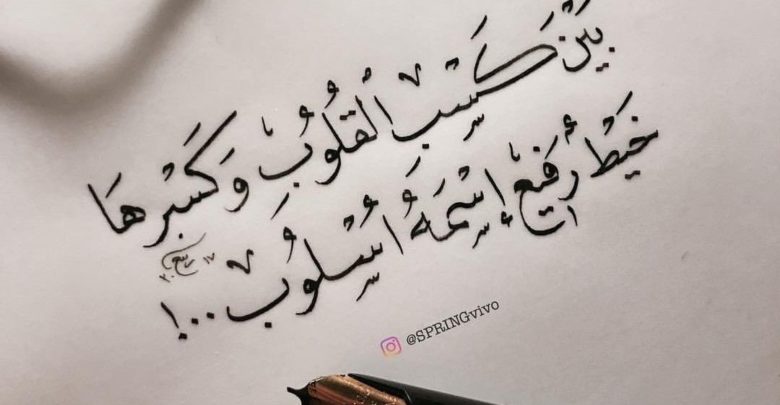 بَيْنَ كَسْبِ الْقُلُوبِ وَكَسْرِهَا
خَيْطٌ رَفِيعٌ إِسْمَهُ أُسْلُوبْ...!
ربيع
@SPRINGvivo